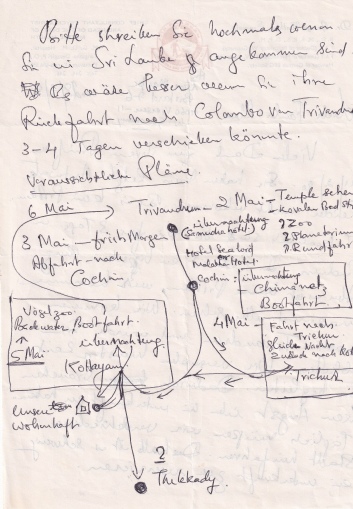 Bitte schreiben Sie nochmals wenn
Sie in Sri Lanka angekommen sind.
Es wäre besser wenn Sie Ihre
Rückfahrt nach Colombo von Trivandrum
3-4 Tagen verschieben könnte.
Voraussichtliche Pläne.
6 Mai
Trivandrum - 2 Mai - Temple sehen
übernachtung
Zoo
Planetarium
Rundfahrt
3 Mai - früh Morgen
Abfahrt nach
Cochin
Hotel Sealord
Hotel
Cochin: übernachtung
Chinanetz
Bootfahrt
4 Mai - Fahrt nach
Trichur
Nacht
Zurück nach
Trichur
Bootfahrt.
5 Mai
übernachtung
Kottayam
unser
?
Thekkady.